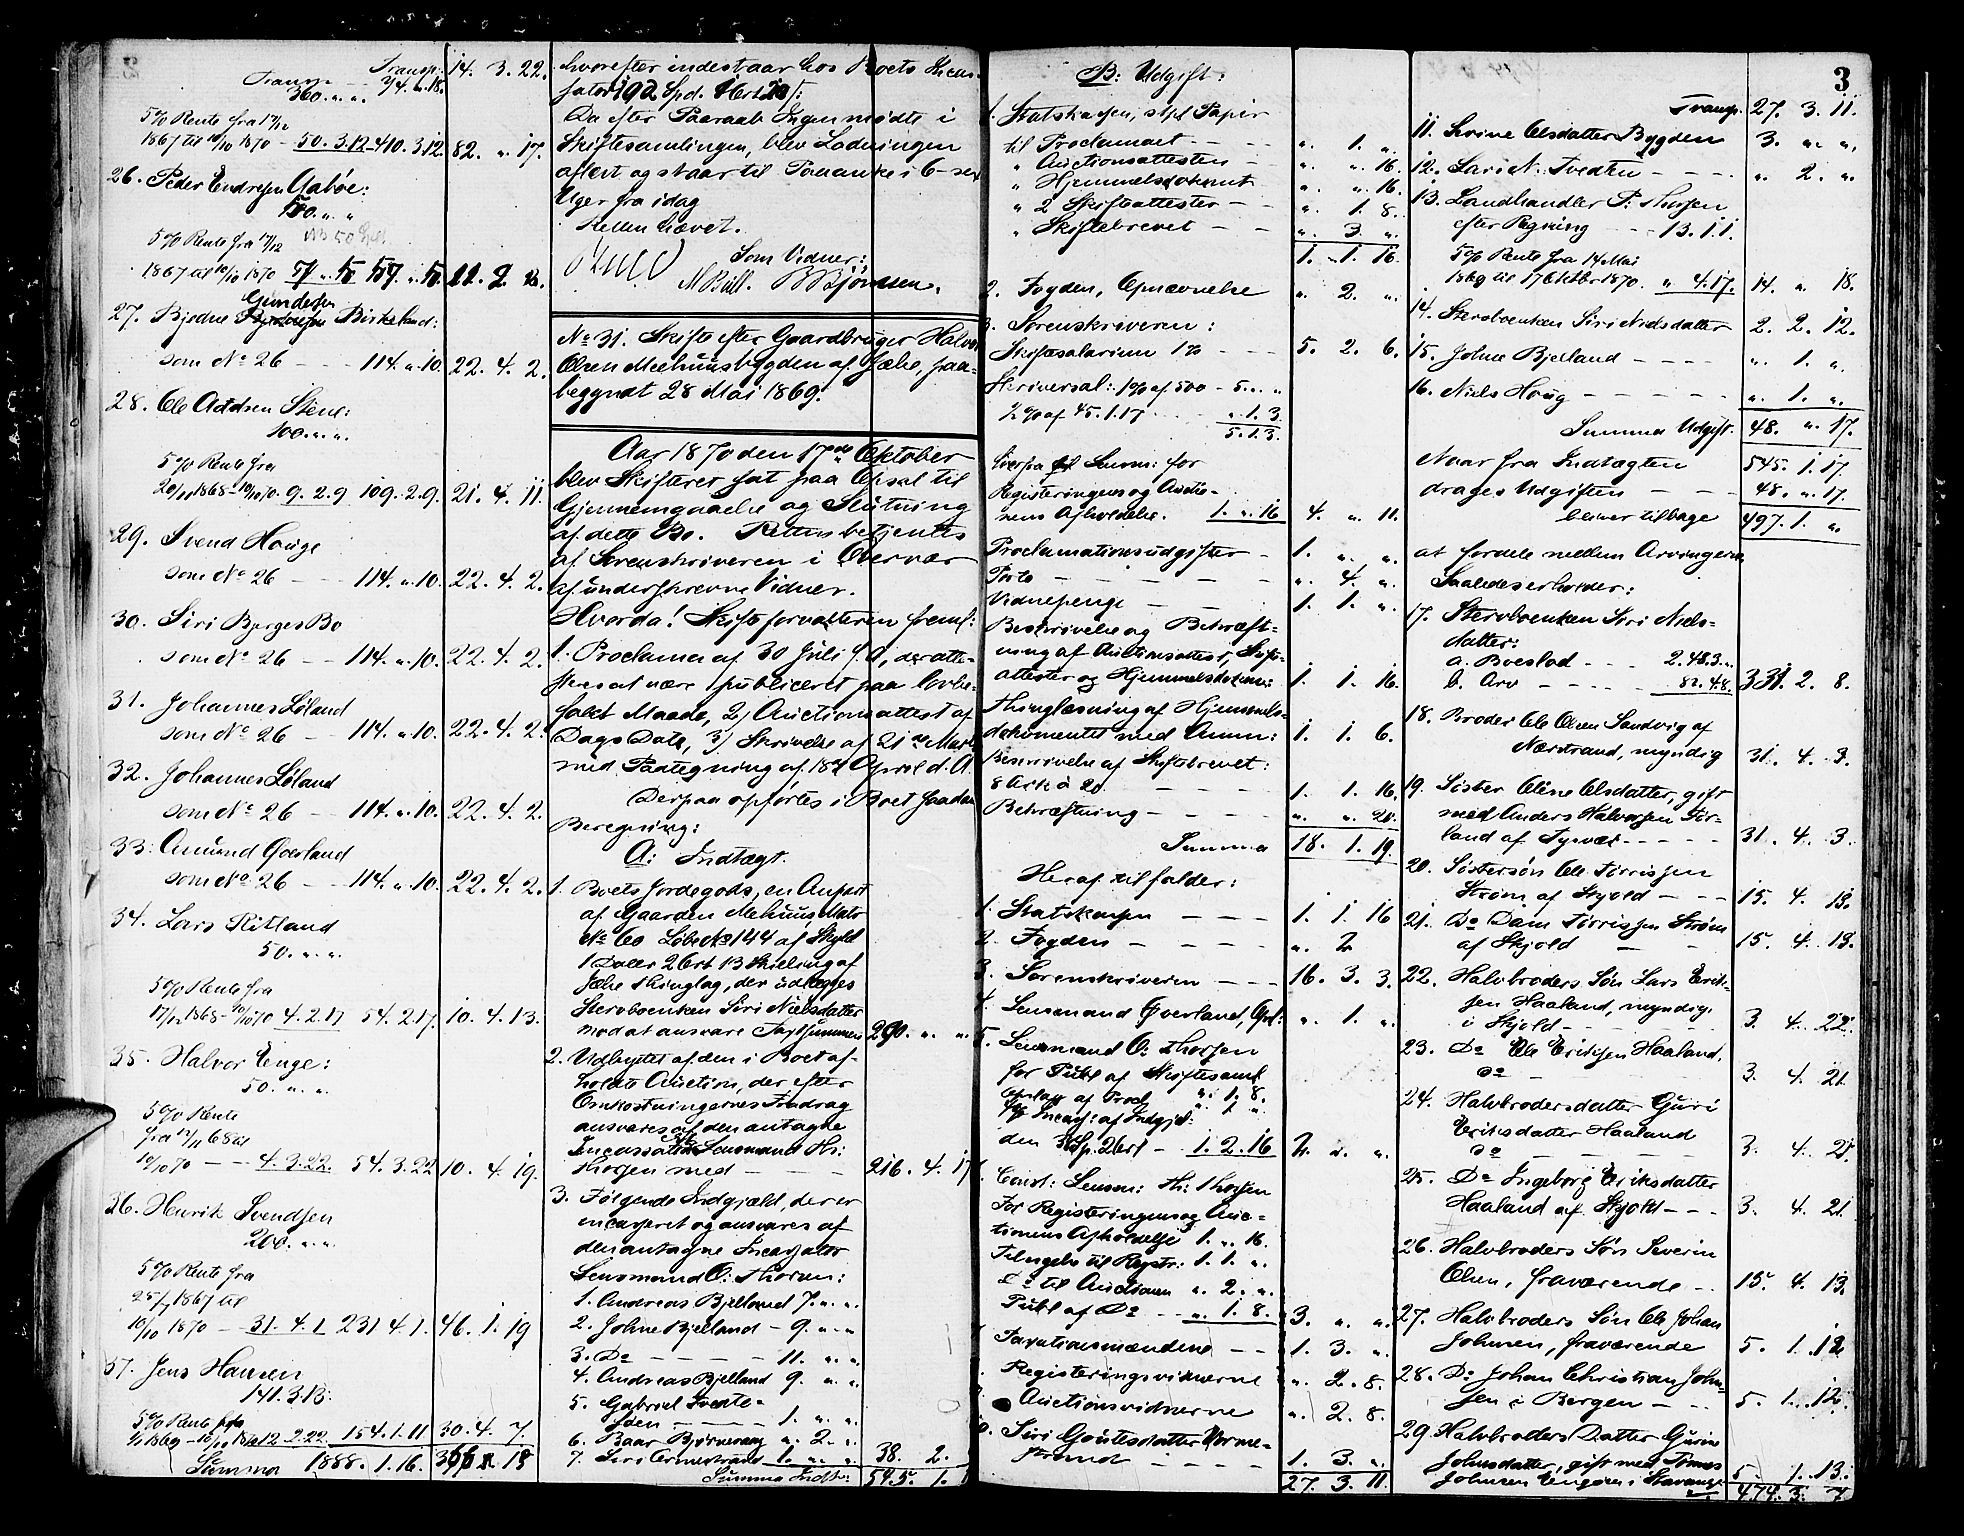 Transp: 14. 3. 22.
Transp. 94. " 18.
360. " ".
5% Rente fra 17/12
1867 til 10/10 1870 — 50. 3.12 410. 3.12. 82. " 17.
26. Peder Endresen Aabøe:
500. " "
5% Rente fra 17/12
1867 til 10/10 1870
27. Bjedne Gundersen Birkeland:
som No 26 — 114. " 10. 22. 4. 2.
28. Ole Addsen Stene:
100. " ".
5% Rente fra
20/11 1868 - 10/10 70. 9. 2. 9 109. 2. 9. 21. 4. 11.
29. Svend Houge
som No 26 — 114. " 10. 22. 4. 2.
30. Siri Bjerges Bo
som No 26 — 114. " 10. 22. 4. 2.
31. Johannes Løland
som No 26 — 114. " 10. 22. 4. 2.
32. Johannes Løland
som No 26 — 114. " 10. 22. 4. 2.
33. Amund Qverland
som No 26 — 114. " 10. 22. 4. 2.
34. Lars Ritland
50. " ".
5% Rente fra
17/12 1868 - 10/10 70 4. 2. 17 54. 2 17. 10. 4. 13.
35. Halvor Enge:
50. " ".
5% Rente
fra 12/11 68 til
10/10 70 — 4. 3. 22. 54. 3. 22 10. 4. 19.
36. Henrik Svendsen
200. " ".
5% Rente fra
25/7 1867 til
10/10 1870 — 31. 4. 1 231 4. 1. 46. 1. 19
37. Jens Hansen
141. 3. 13:
5% Rente fra
1/1 1869 - 10/10 1870 12. 2. 22. 154. 1. 11 30. 4. 7.
Summa 1888. 1. 16.
hvorefter indestaar hos Boets Incas-
sator 192 Spd.
Da efter Paaraab Ingen mødte i
Skiftesamlingen, blev Ladningen
aflæst og staar til Paaanke i 6 - sex
Uger fra idag
Retten hævet.
Som Vidner:
M Bill. B Bjørnsen.
No 31. Skifte efter Gaardbruger Halvor
Olsen Meehuusbygden af Jælse, paa-
begyndt 28 Mai 1869.
Aar 1870 den 17de Oktober
blev Skifteret sat paa Opsal til
Gjennemgaaelse og Slutning
af dette Bo. Retten betjentes
af Sorenskriveren i Overvær
af underskrevne Vidner.
Hvorda! Skifteforvalteren freml:
1. Proclama af 30 Juli f. A., der atte-
steres at være publiceret paa lovbe-
falet Maade, 2) Auctionsattest af
Dags Dato, 3) Skrivelse af 21de Marts
med Paategning af 18de April d. A.
Derpaa opførtes i Boet saadan
Beregning:
A: Indtægt.
1. Boets Jordegods, en Anpart
af Gaarden Mehuus Matr
No 60 Løbe No 144 af Skyld
1 Daler 2 Ort 13 Skilling af
Jælse Thinglag, der udlægges
Sterboenken Siri Nielsdatter
mod at ansvare Taxtsummen 290. " ".
2. Udbyttet af den i Boet af-
holdte Auction, der efter
Omkostningernes Fradrag
ansvares af den antagne
Incassator Lensmand Th:
Thorsen med — 216. 4. 17
3. Følgende Indgjæld, der er
incasseret og ansvares af
den antagne Incassator
Lensmand O: Thorsen:
1. Andreas Bjelland 7. " ".
2. Johne Bjelland — 9. " ".
3. Do — 11. " ".
4. Andreas Bjelland 9. " ".
5. Gabriel Tvete-
den — 1. " ".
6. Baar Bjørnevaag " 2. ".
7. Siri Ormestrand 1. " ". 38. 2.
Summa Indt: 545. 1. 1
B: Udgift:
1. Statskassen, stpl Papir
til Proclamaet — ". 1. ".
" Auctionsattesten — ". " 16.
" Hjemmelsdokumt ". " 16.
" 2 Skifteattester — ". 1. 8.
" Skiftebrevet — ". 3. ".
1. 1. 16.
2. Fogden, Opnævnelse ". 2. ".
3. Sorenskriveren:
Skiftesalarium 1% — 5. 2. 6.
Skriversal: 1% af 500 — 5. " "
½% af 45. 1. 17 — " 1. 3
5. 1. 3.
herfra Lensm: for
Registeringens og Auctio-
nens Afholdelse. 1. " 16 4. " 11.
Proclamationsudgifter — 1. " ".
Porto — ". 4. ".
Vidnepenge — 1. 1. ".
Beskrivelse og Bekræft-
ning af Auctionsattest, Skifte-
attester og Hjemmelsdokum: 1. 1. 16.
Thinglæsning af Hjemmels-
dokumentet med Anm: 1. 1. 6.
Beskrivelse af Skiftebrevet:
8 Ark à 20 — 1. 1. 16.
Bekræftning — ". ". 20.
Summa 18. 1. 19.
Heraf tilfalder:
1. Statskassen — 1. 1. 16
2. Fogden — ". 2
3. Sorenskriveren — 16. 3. 3.
4. Lensmand Qverland, Opl: ". 1. ".
5. Lensmand O: Thorsen
for Publ af Skiftesaml
Opslag af Procl " 1. 8.
for Incass: af Indgjel:
den 38 Sp. 2 Ort — 1. 2. 16 2. ". ".
Const: Lensm: Th: Thorsen
For Registeringens og Auc-
tionens Afholdelse 1. " 16.
Tilsigelse til Registr: 1. 1. ".
Do til Auctionen " 2. ".
Publ af Do — " 1. 8. 3. " ".
Taxationsmændene — 1. 3. ".
Registeringsvidnerne ". 2. 8.
Auctionsvidnerne ". 2. 8.
Siri Goutesdatter Orme-
strand — 1. 3. ".
27. 3. 11.
3
Transp. 27. 3. 11.
11. Serine Olsdatter Bygden 3. " ".
12. Lars N: Tvedten — ". 2. ".
13. Landhandler P: Thorsen
efter Regning — 13. 1. 1.
5% Rente fra 14 Mai
1869 til 17 Oktbr 1870. " 4. 17. 14. " 18.
14. Sterboenken Siri Nielsdatter 2. 2. 12.
15. Johne Bjelland — ". 1. ".
16. Niels Houg — ". 1. ".
Summa Udgift. 48. " 17.
Naar fra Indtægten 545. 1. 17
drages Udgiften — 48. " 17.
bliver tilbage 497. 1. "
at fordele mellem Arvingerne
Saaledes erholder:
17. Sterboenken Siri Niels-
datter:
a. Boeslod — 248. 3. ".
b. Arv — 82. 4. 8. 331. 2. 8.
18. Broder Ole Olsen Sandvig af
Nærstrand, myndig 31. 4. 3.
19. Søster Oline Olsdatter, gift
med Anders Halvorsen Før-
land af Tysvær — 31. 4. 3.
20. Søstersøn Ole Tørrissen
Strøm af Skjold — 15. 4. 13.
21. Do Dani Tørrissen Strøm
af Skjold — 15. 4. 13.
22. Halvbroders Søn Lars Erik-
sen Haaland, myndig
i Skjold — 3. 4. 22.
23. Do Ole Eriksen Haaland,
do — 3. 4. 21.
24. Halvbrodersdatter Guri
Eriksdatter Haaland
do — 3. 4. 21.
25. Do Ingeborg Eriksdatter
Haaland af Skjold — 3. 4. 21
26. Halvbroders Søn Severin
Olsen, fraværende — 15. 4. 13.
27. Halvbroders Søn Ole Johan
Johnsen, fraværende 5. 1. 12
28. Do Johan Christian John-
sen i Bergen — 5. 1. 12.
29. Halvbroders Datter Gurine
Johnsdatter, gift med Tønnes
Johnsen Engøen i Stavanger 5. 1. 13.
474. 3. 7.